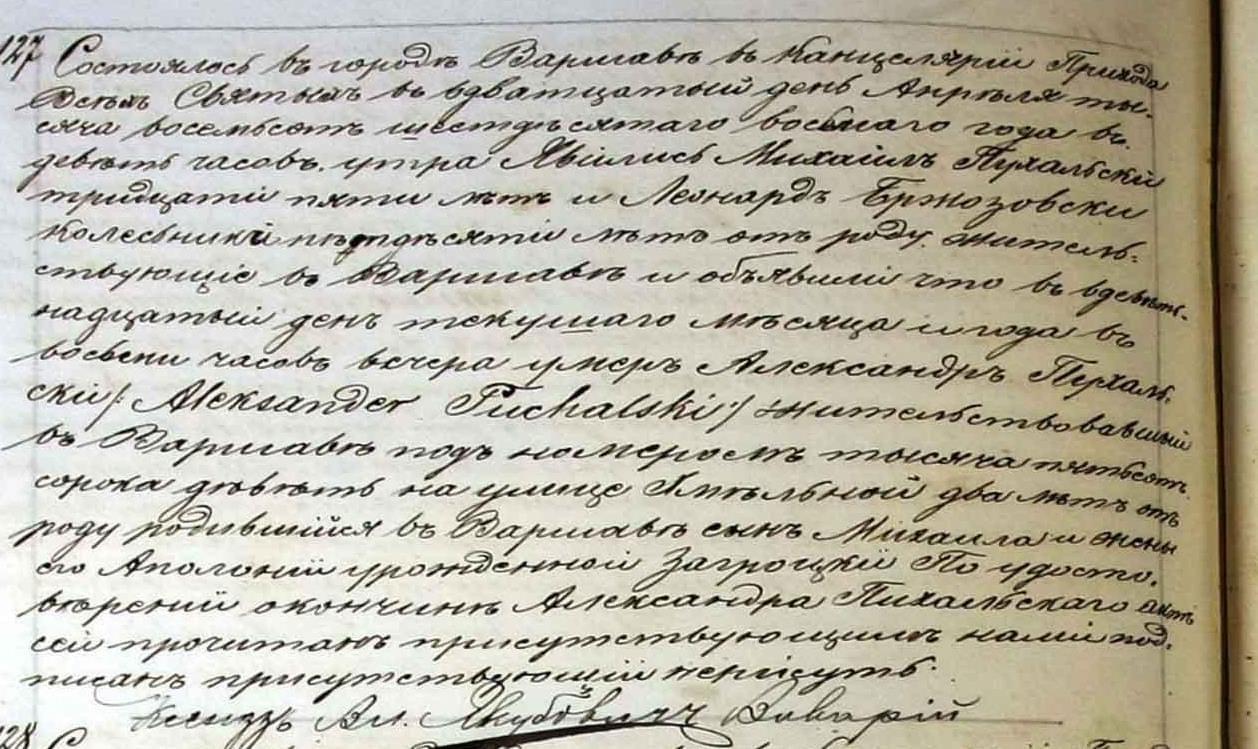 127 Состоялось въ городѣ Варшавѣ въ Канцеляріи Прихода
Всѣхъ Святыхъ въ вдватцатый день Апрѣля ты-
сяча восемьсотъ шестдѣсятаго восьмаго года въ
девять часовъ утра Явились Михаилъ Пухальскій
тридцати пяти лѣтъ и Леонардъ Бржозовски
колесьники пѣтдѣсяти лѣтъ отъ роду житель-
ствующіе въ Варшавѣ и объявили что въ вдевят-
надцатый день текущаго мѣсяца и года въ
восьеми часовъ вечера умеръ Александръ Пухаль-
скій /: Aleksander Puchalski :/ жительствовавшій
въ Варшавѣ подъ номеромъ тысяча пятьсотъ
сорока дѣвѣть на улице Хмѣльной два лѣтъ отъ
роду родившійся въ Варшавѣ сынъ Михаила и жены
его Аполоніи урожденной Загроцкій По удосто-
вѣреніи окончинѣ Александра Пихальскаго актъ
сей прочитанъ присутствующимъ нами под-
писанъ присутствующій
Ксендзъ Вл. Якубовичъ Викарій
128